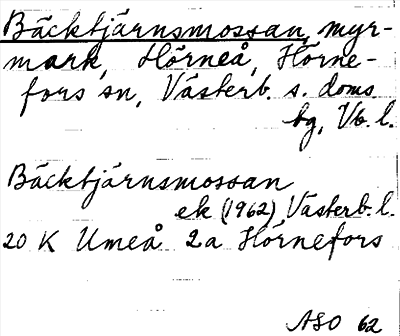 Bäcktjärnsmossan, myr-
mark, Hörneå, Hörne-
fors sn, Västerb. s. doms.
bg, Vb. l.
Bäcktjärnsmossan
ek (1962) Västerb. l.
20 K Umeå 2a Hörnefors
ASO 62